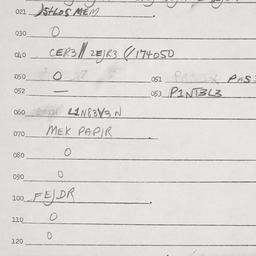 021 JSHLOS MEM
030 0
040 CER3// 2E/R3 (/174050
050 0 051 PAS
052 — 053 P1NT3L3
060 L1N83V3N
070 MEK PAPIR
080 0
090 0
100 FE/DR
110 0
120 0